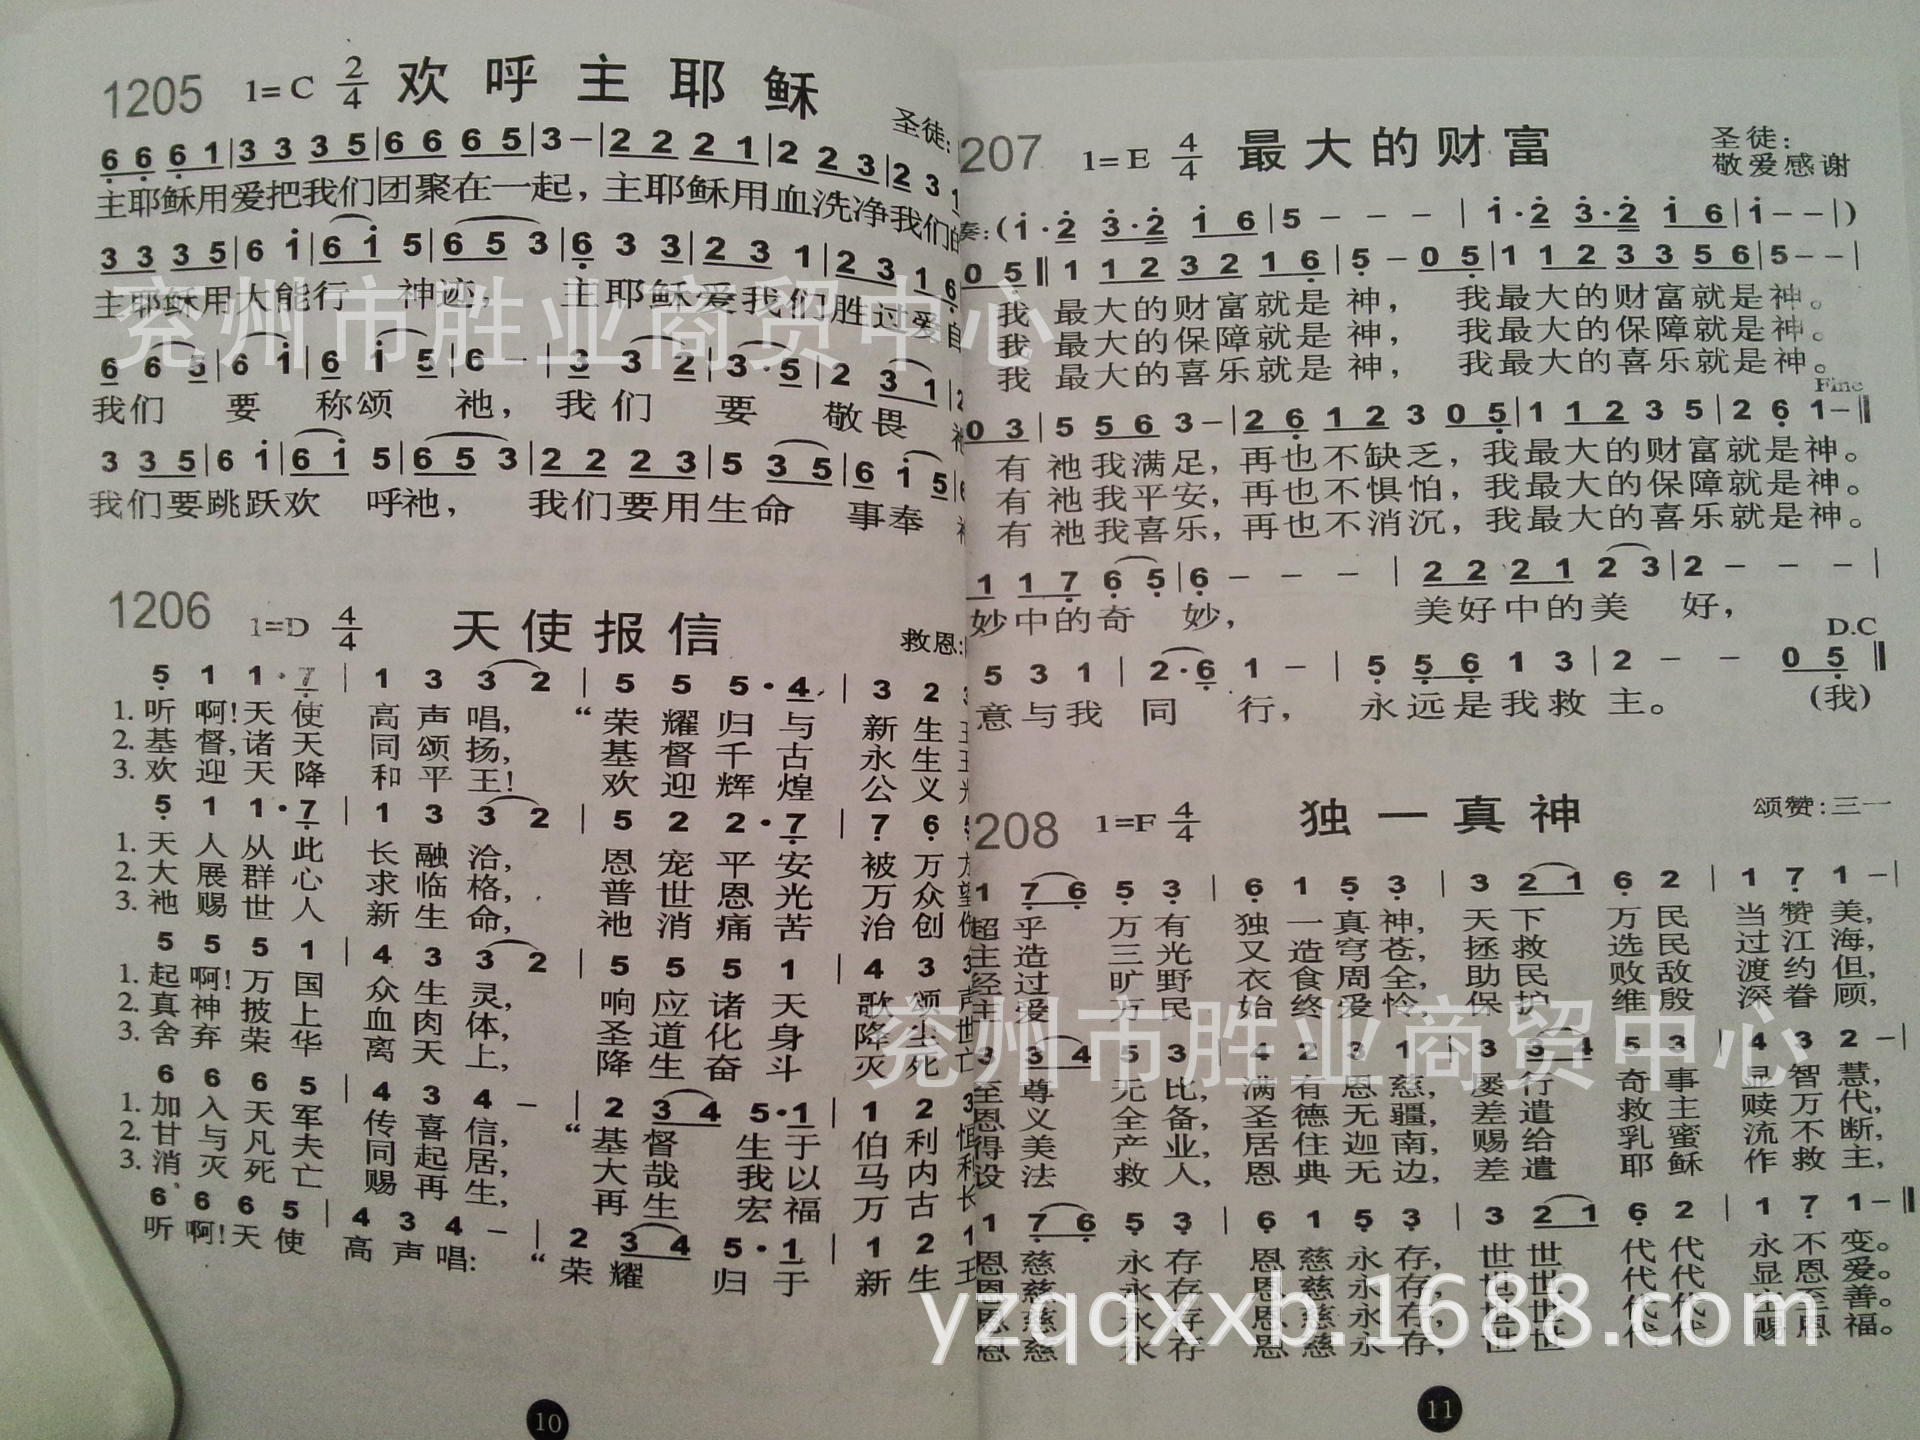 1205 1=C 2/4 欢呼主耶稣
圣徒:
6 6 6 1 | 3 3 3 5 | 6 6 6 5 | 3 – | 2 2 2 1 | 2 2 3 | 2 3 1
主耶稣用爱把我们团聚在一起，主耶稣用血洗净我们的
3 3 3 5 | 6 i | 6 i 5 | 6 5 3 | 6 3 3 | 2 3 1 | 2 3 1 6
主耶稣用大能行 神迹， 主耶稣爱我们胜过爱自
6 6 5 | 6 i | 6 i 5 | 6 – | 3 3 2 | 3 · 5 | 2 3 1 | 2
我们 要 称颂 祂，我们 要 敬畏 祂
3 3 5 | 6 i | 6 i 5 | 6 5 3 | 2 2 2 3 | 5 3 5 | 6 i 5 | 6
我们要跳跃欢 呼祂， 我们要用生命 事奉
1206 1=D 4/4 天使报信
救恩:
5 1 1 · 7 | 1 3 3 2 | 5 5 5 · 4 | 3 2 3
1. 听啊!天使 高声唱，“荣耀归与 新生王
2. 基督,诸天 同颂扬， 基督千古 永生
3. 欢迎天降 和平王! 欢迎辉煌 公义
5 1 1 · 7 | 1 3 3 2 | 5 2 2 · 7 | 7 6 5
1. 天人从此 长融洽， 恩宠平安 被万
2. 大展群心 求临格， 普世恩光 万众望
3. 祂赐世人 新生命， 祂消痛苦 治创
5 5 5 1 | 4 3 3 2 | 5 5 5 1 | 4 3 3
1. 起啊!万国 众生灵， 响应诸天 歌颂声
2. 真神披上 血肉体， 圣道化身 降尘世
3. 舍弃荣华 离天上， 降生奋斗 灭死亡
6 6 6 5 | 4 3 4 – | 2 3 4 5 · 1 | 1 2 3
1. 加入天军 传喜信，“基督生于 伯利恒
2. 甘与凡夫 同起居， 大哉我以 马内利
3. 消灭死亡 赐再生， 再生宏福 万古长
6 6 6 5 | 4 3 4 – | 2 3 4 5 · 1 | 1 2 1
听啊!天使 高声唱:“荣耀 归于 新生王
10
207 1=E 4/4 最大的财富
圣徒:
敬爱感谢
奏:(i · 2 3 · 2 i 6 | 5 – – – | i · 2 3 · 2 i 6 | i – – | )
0 5 ‖ 1 1 2 3 2 1 6 | 5 – 0 5 | 1 1 2 3 3 5 6 | 5 – – |
我 最大的财富就是神， 我最大的财富就是神。
我 最大的保障就是神， 我最大的保障就是神。
我 最大的喜乐就是神， 我最大的喜乐就是神。
Fine
0 3 | 5 5 6 3 – | 2 6 1 2 3 0 5 | 1 1 2 3 5 | 2 6 1 – ‖
有 祂我满足，再也不缺乏，我最大的财富就是神。
有 祂我平安，再也不惧怕，我最大的保障就是神。
有 祂我喜乐，再也不消沉，我最大的喜乐就是神。
1 1 7 6 5 | 6 – – – | 2 2 2 1 2 3 | 2 – – – |
妙中的奇 妙， 美好中的美 好，
D.C
5 3 1 | 2 · 6 1 – | 5 5 6 1 3 | 2 – – 0 5 ‖
意与我 同 行， 永远是我救 主。 (我)
208 1=F 4/4 独一真神
颂赞:三一
1 7 6 5 3 | 6 1 5 3 | 3 2 1 6 2 | 1 7 1 – |
超乎 万有 独一真神，天下 万民 当赞美，
主造 三光 又造穹苍，拯救 选民 过江海，
经过 旷野 衣食周全，助民 败敌 渡约但，
主爱 万民 始终爱怜，保护 维殷 深眷顾，
3 3 4 5 3 | 4 2 3 1 | 3 3 4 5 3 | 4 3 2 – |
至尊 无比，满有恩慈，屡行 奇事 显智慧，
恩义 全备，圣德无疆，差遣 救主 赎万代，
得美 产业，居住迦南，赐给 乳蜜 流不断，
设法 救人，恩典无边，差遣 耶稣 作救主，
1 7 6 5 3 | 6 1 5 3 | 3 2 1 6 2 | 1 7 1 – ‖
恩慈 永存 恩慈永存，世世 代代 永不变。
恩慈 永存 恩慈永存，世世 代代 显恩爱。
恩慈 永存 恩慈永存，世世 代代 至善。
恩慈 永存 恩慈永存，世世 代代 赐恩福。
11
兖州市胜业商贸中心
兖州市胜业商贸中心
yzqqxxb.1688.com